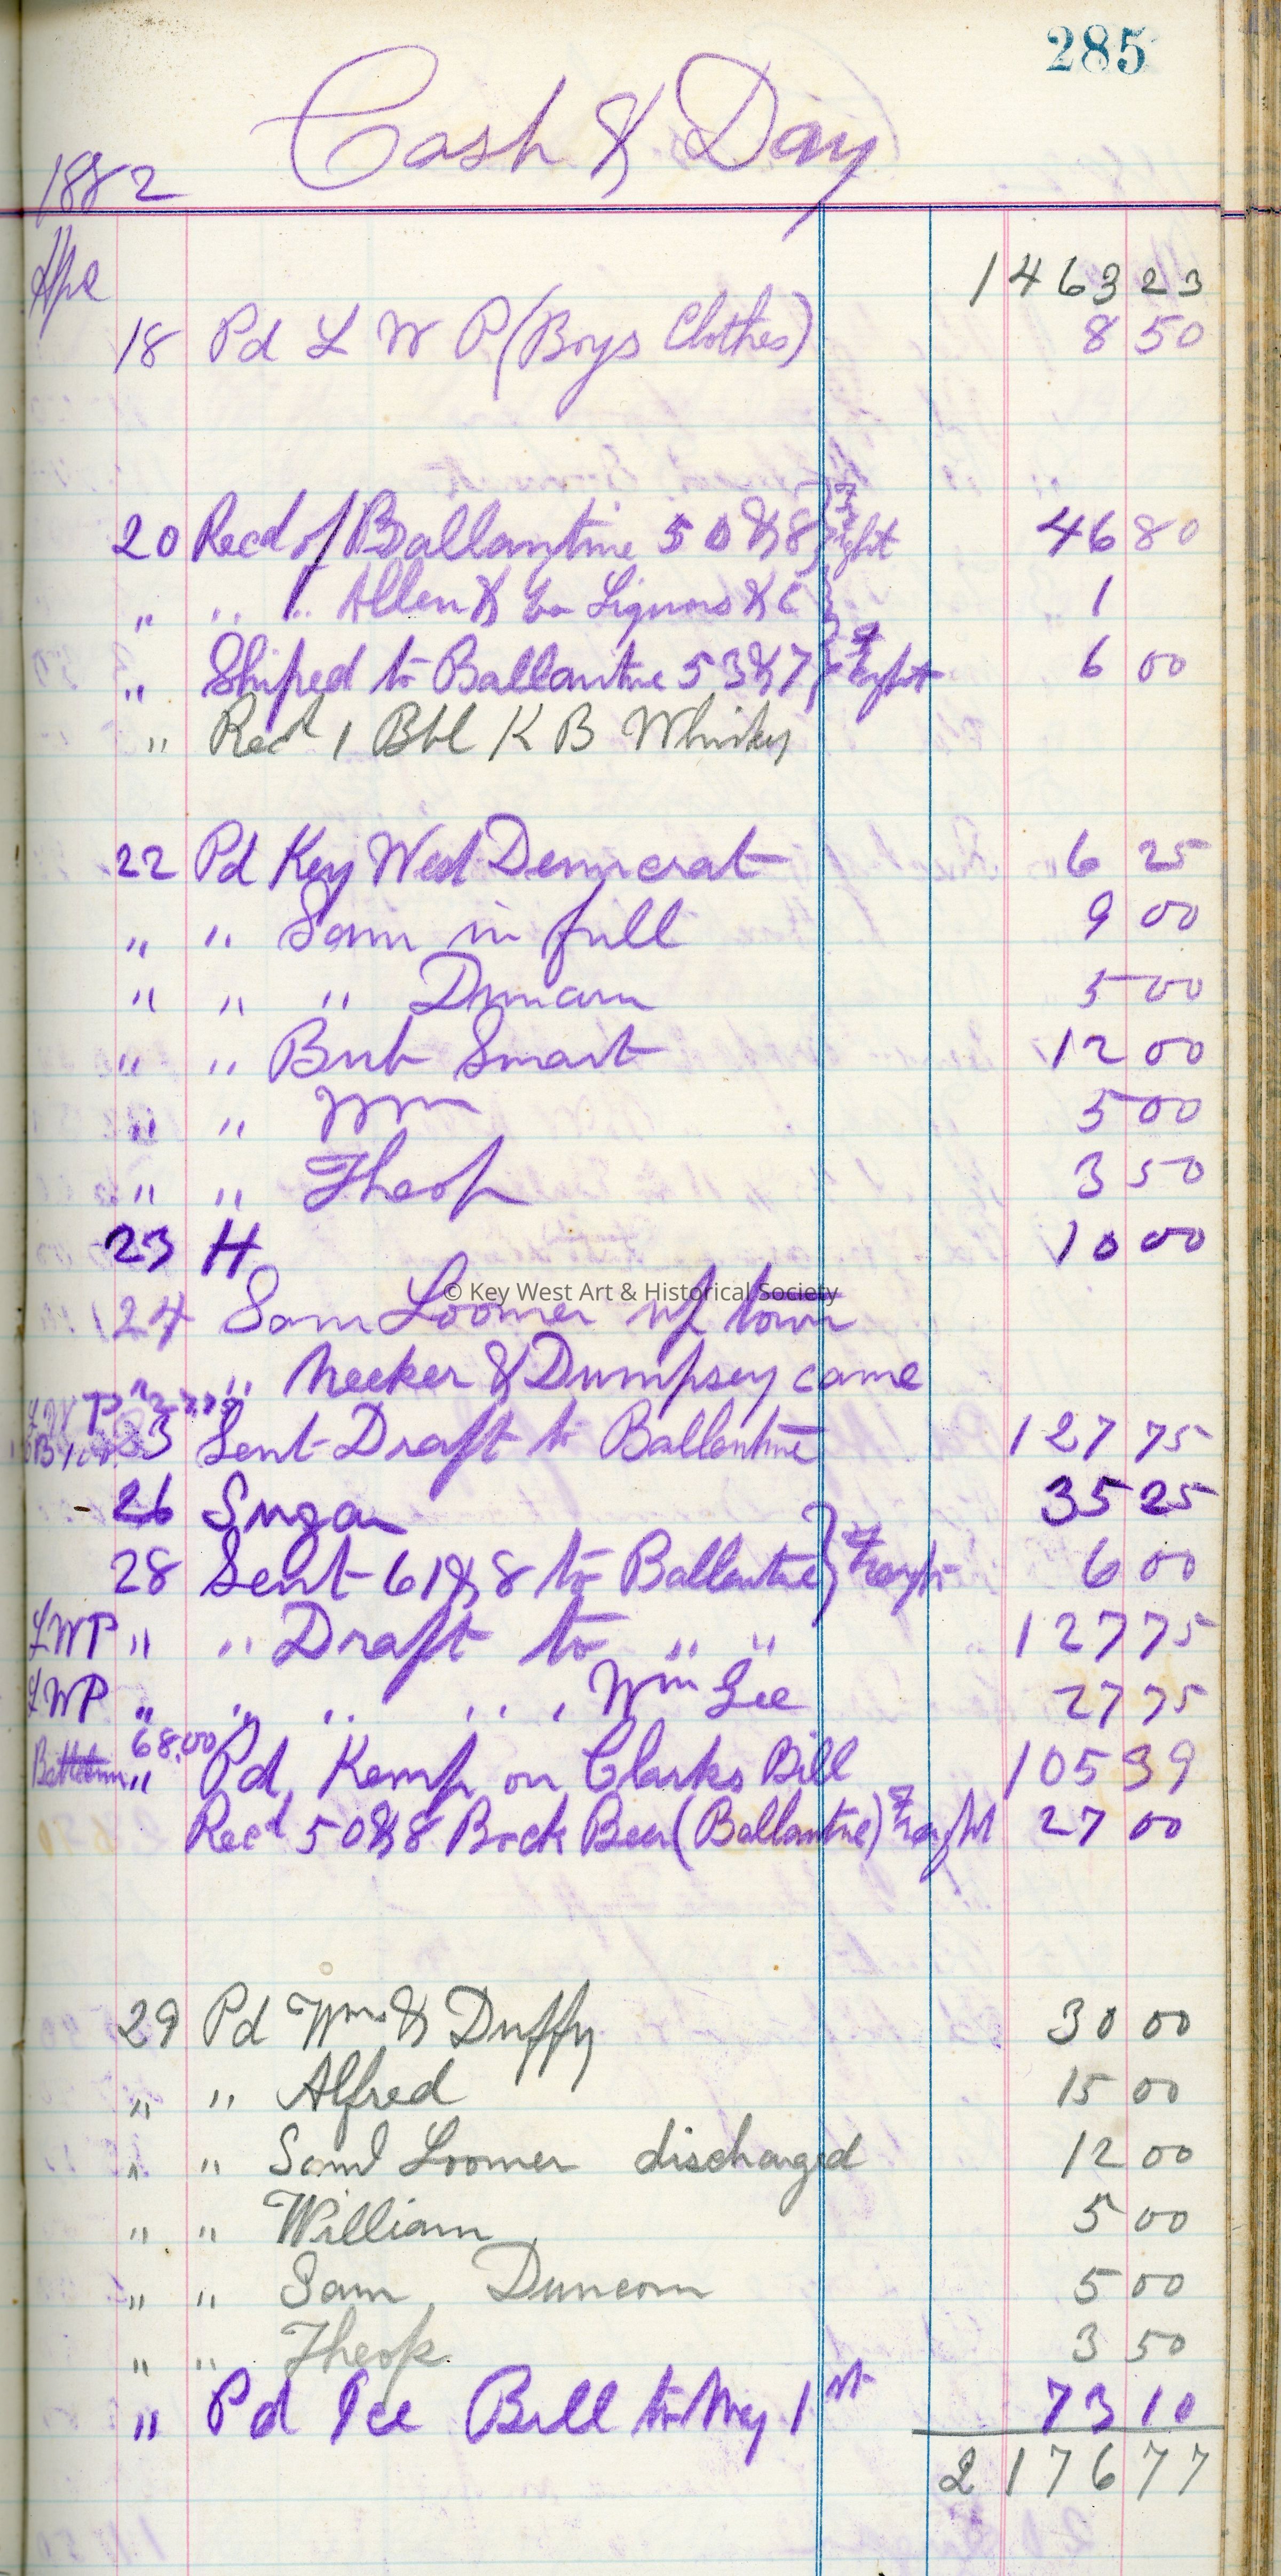 285
Cash & Day
1882
Apl 1463 23
18 Pd L W P (Boys Clothes) 8 50
20 Recd of Ballantine 50 & 8 } fght 46 80
" " " Allen & Co Liquors &C } 1
" Shiped to Ballantine 53 & 7 } 6 00
" Recd 1 Bbl K B Whisky
22 Pd Key West Democrat 6 25
" " Sam in full 9 00
" " " Duncan 5 00
" " Bub Smart 12 00
" " Wm 5 00
" " Theop 3 50
23 H 10 00
© Key West Art & Historical Society
24 Sam Loomer up town
" " Neeker & Dumpsey came
23 Sent Draft to Ballantine 127 75
- 26 Sugar 35 25
28 Sent 61 & 8 to Ballantine } Freight 6 00
LWP " " Draft to " " 127 75
LWP " " " " " Wm Lee 27 75
68.00
" Pd Kemp on Clarks Bill 105 39
Recd 50 & 8 Bock Beer (Ballantine) Freight 27 00
29 Pd Wm & Duffy 30 00
" " Alfred 15 00
" " Saml Loomer discharged 12 00
" " William 5 00
" " Sam Duncan 5 00
" " Theop 3 50
" Pd Ice Bill to May 1st 73 10
2176 77